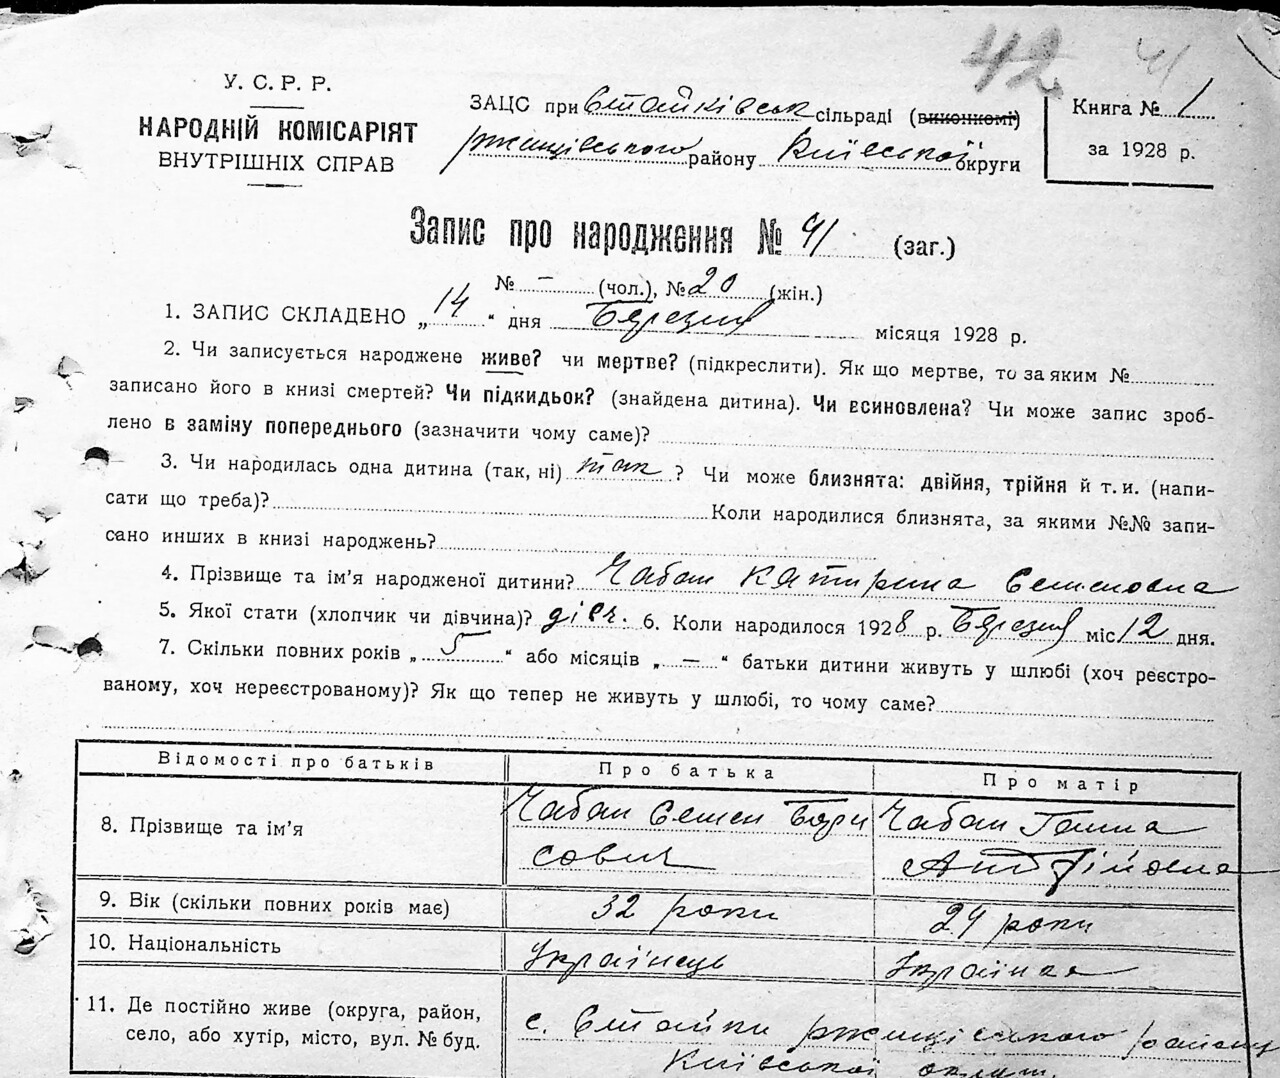 42 41
У. С. Р. Р.
НАРОДНІЙ КОМІСАРІЯТ
ВНУТРІШНІХ СПРАВ
ЗАЦС при Стайківськ сільраді (виконкомі)
ржищівського району Київської округи
Книга № 1
за 1928 р.
Запис про народження № 41 (заг.)
№ — (чол.), № 20 (жін.)
1. ЗАПИС СКЛАДЕНО „ 14 “ дня Березня місяця 1928 р.
2. Чи записується народжене живе? чи мертве? (підкреслити). Як що мертве, то за яким №
записано його в книзі смертей? Чи підкидьок? (знайдена дитина). Чи всиновлена? Чи може запис зроб-
лено в заміну попереднього (зазначити чому саме)?
3. Чи народилась одна дитина (так, ні) так ? Чи може близнята: двійня, трійня й т. и. (напи-
сати що треба)? Коли народилися близнята, за якими №№ запи-
сано инших в книзі народжень?
4. Прізвище та ім’я народженої дитини? Чабан Катирина Семеновна
5. Якої стати (хлопчик чи дівчина)? дівч. 6. Коли народилося 1928 р. Березня міс 12 дня.
7. Скільки повних років „ 5 “ або місяців „ — “ батьки дитини живуть у шлюбі (хоч реєстро-
ваному, хоч нереєстрованому)? Як що тепер не живуть у шлюбі, то чому саме?
Відомості про батьків Про батька Про матір
8. Прізвище та ім’я Чабан Семен Бори Чабан Ганна
сович
9. Вік (скільки повних років має) 32 роки 24 роки
10. Національність Українець Українка
11. Де постійно живе (округа, район,
село, або хутір, місто, вул. № буд.
с. Стайки ржищівського району
Київської округи.